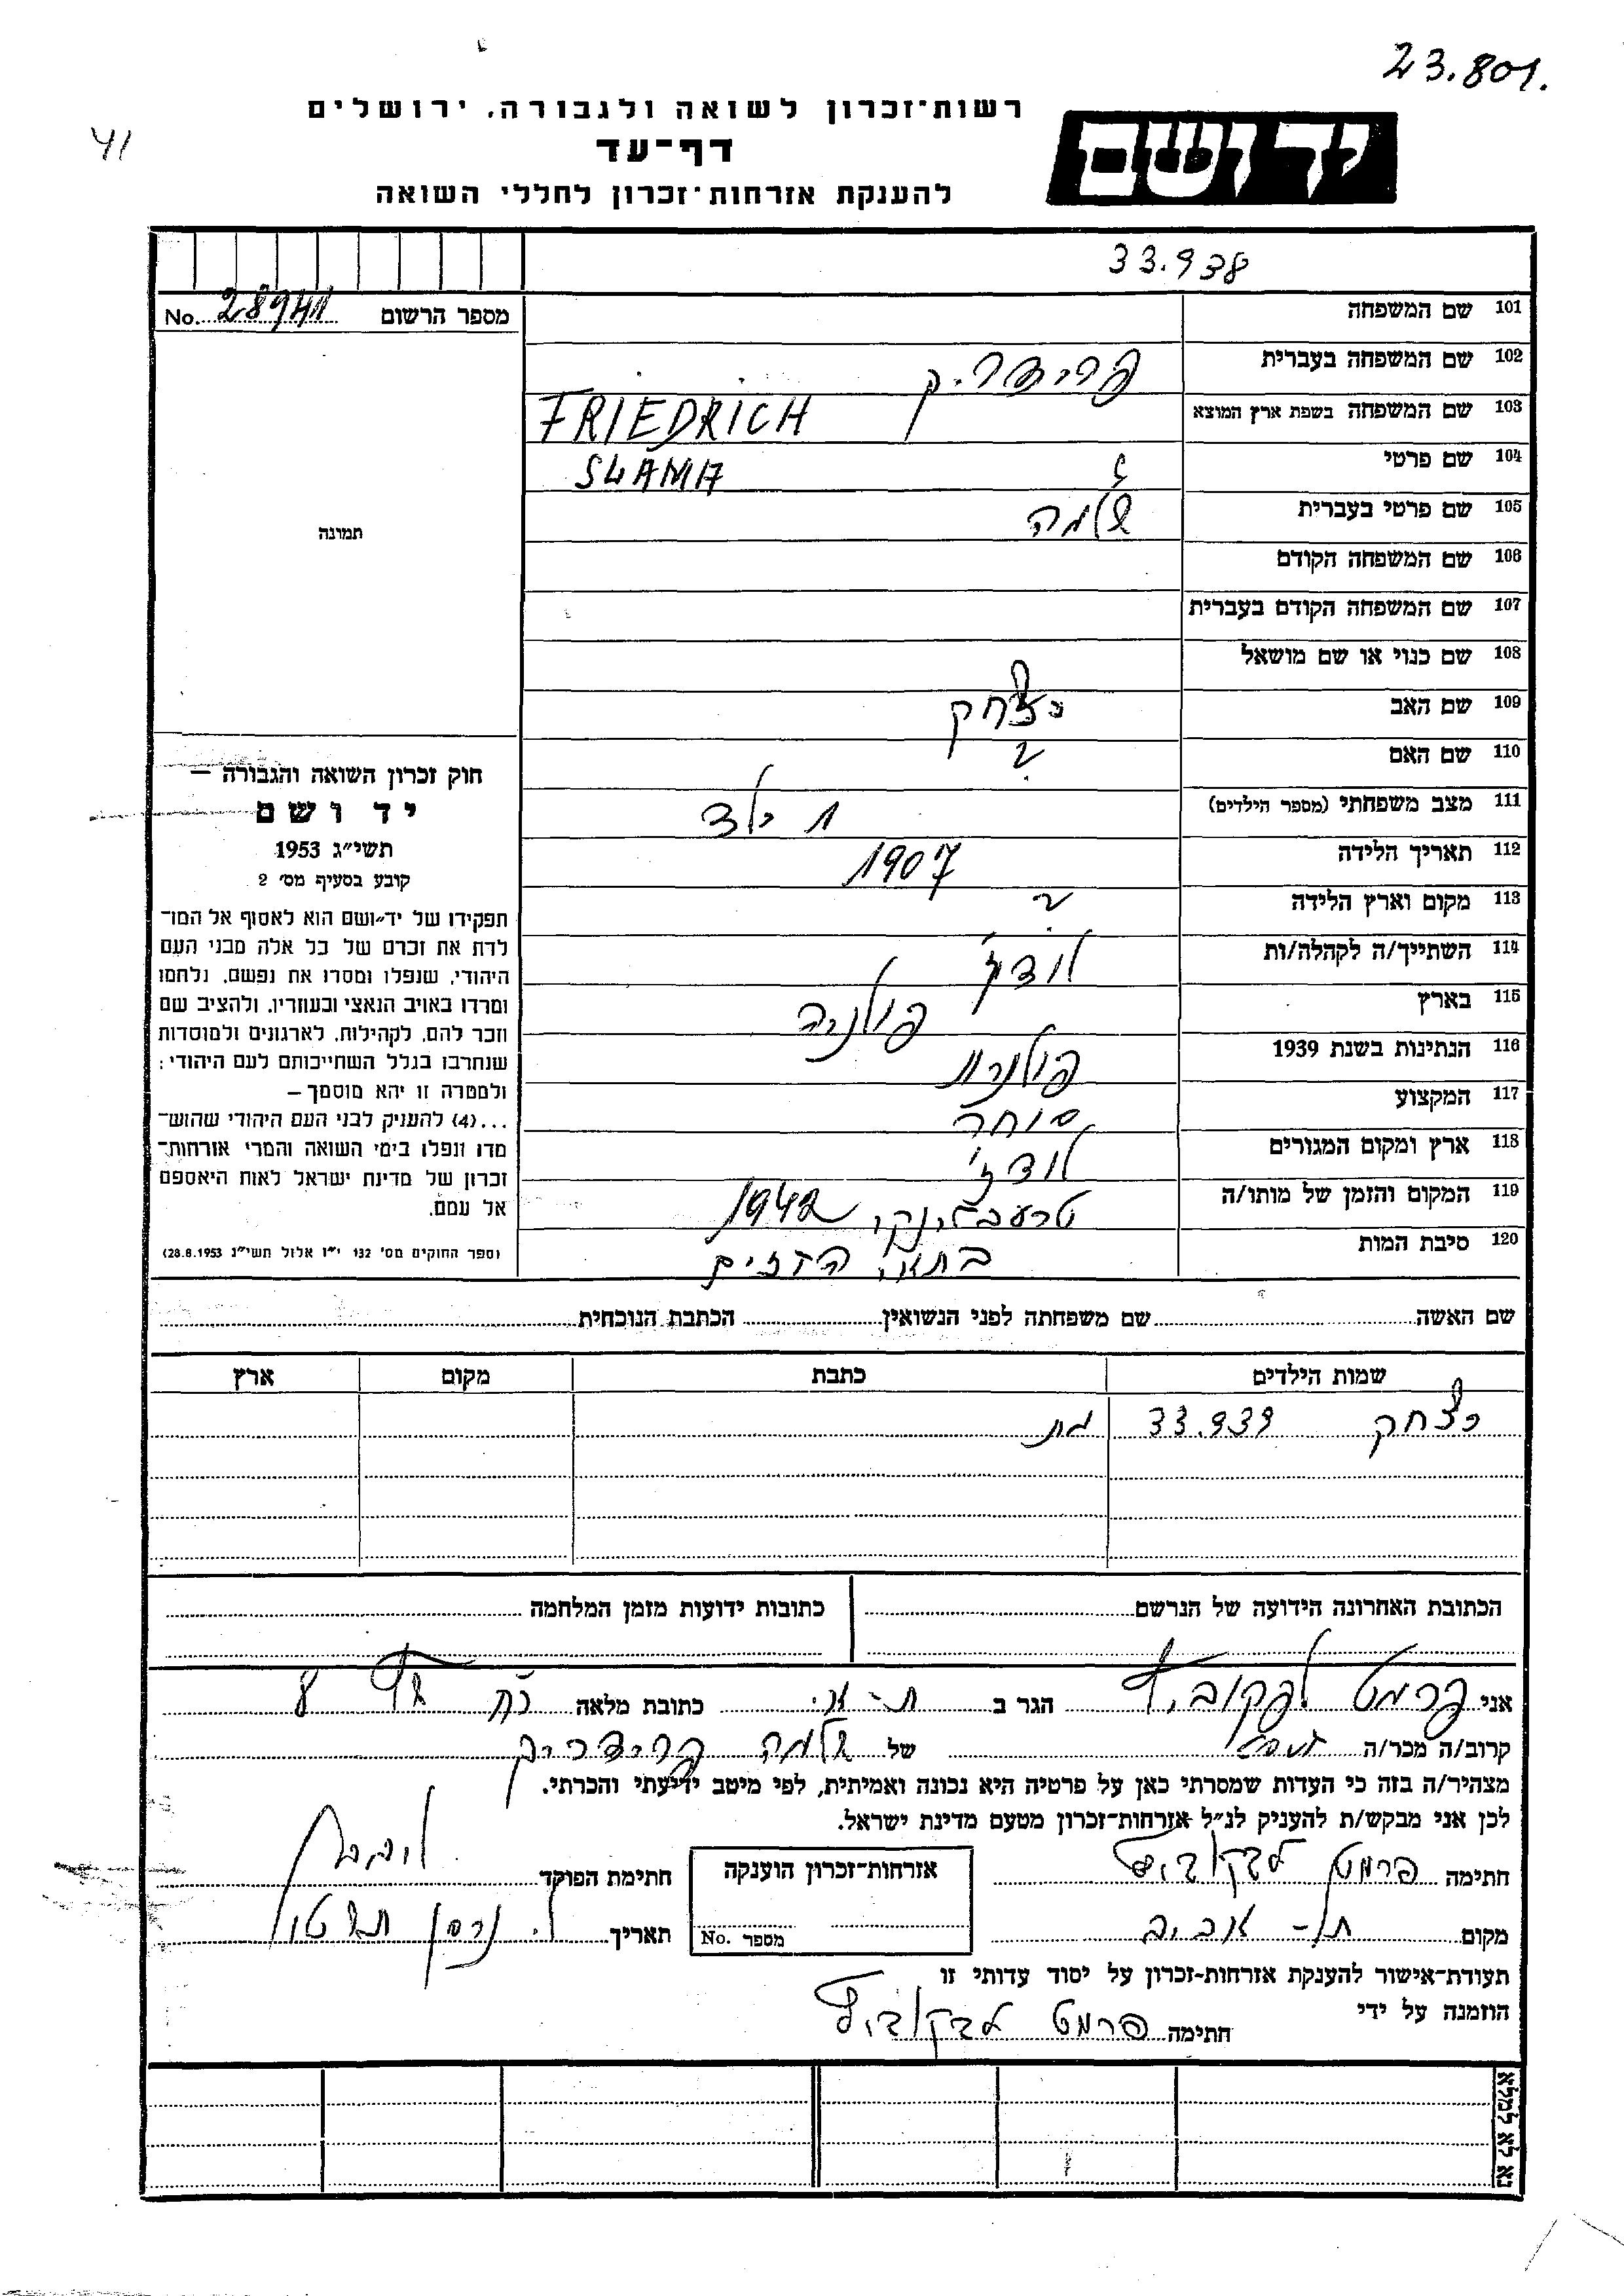 23.801.
41
רשות־זכרון לשואה ולגבורה, ירושלים
דף־עד
להענקת אזרחות־זכרון לחללי השואה
יד ושם
33.938
מספר הרשום No. 28941
101 שם המשפחה
102 שם המשפחה בעברית פרידריק
103 שם המשפחה בשפת ארץ המוצא FRIEDRICH
104 שם פרטי SLAMA
105 שם פרטי בעברית שלמה
106 שם המשפחה הקודם
107 שם המשפחה הקודם בעברית
108 שם כנוי או שם מושאל
109 שם האב יצחק
110 שם האם ?
111 מצב משפחתי (מספר הילדים) 1 ילד
112 תאריך הלידה 1907
113 מקום וארץ הלידה ?
114 השתייך/ה לקהלה/ות לודז'
115 בארץ פולניה
116 הנתינות בשנת 1939 פולנית
117 המקצוע סוחר
118 ארץ ומקום המגורים לודז'
119 המקום והזמן של מותו/ה טרעבלינקי 1942
120 סיבת המות בתאי הגזים
תמונה
חוק זכרון השואה והגבורה —
יד ושם
תשי״ג 1953
קובע בסעיף מס׳ 2
תפקידו של יד־ושם הוא לאסוף אל המו־
לדת את זכרם של כל אלה מבני העם
היהודי, שנפלו ומסרו את נפשם, נלחמו
ומרדו באויב הנאצי ובעוזריו, ולהציב שם
וזכר להם, לקהילות, לארגונים ולמוסדות
שנחרבו בגלל השתייכותם לעם היהודי:
ולמטרה זו יהא מוסמך —
...(4) להעניק לבני העם היהודי שהוש־
מדו ונפלו בימי השואה והמרי אזרחות־
זכרון של מדינת ישראל לאות היאספם
אל עמם.
(ספר החוקים מס׳ 132 י״ז אלול תשי״ג 28.8.1953)
שם האשה שם משפחתה לפני הנשואין הכתבת הנוכחית
שמות הילדים כתבת מקום ארץ
יצחק 33.939 מת
הכתובת האחרונה הידועה של הנרשם כתובות ידועות מזמן המלחמה
אני פרמט הגר ב ת-א. כתובת מלאה 8
קרוב/ה מכר/ה של שלמה פרידריק
מצהיר/ה בזה כי העדות שמסרתי כאן על פרטיה היא נכונה ואמיתית, לפי מיטב ידיעתי והכרתי.
לכן אני מבקש/ת להעניק לנ״ל אזרחות־זכרון מטעם מדינת ישראל.
חתימה פרמט אזרחות־זכרון הוענקה חתימת הפוקד
מקום תל-אביב מספר No. תאריך
תעודת־אישור להענקת אזרחות־זכרון על יסוד עדותי זו
הוזמנה על ידי
חתימה פרמט
נא לא למלא